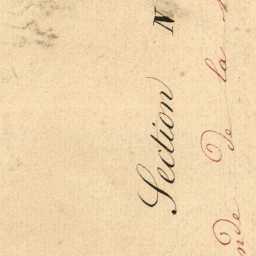 Section N
de la